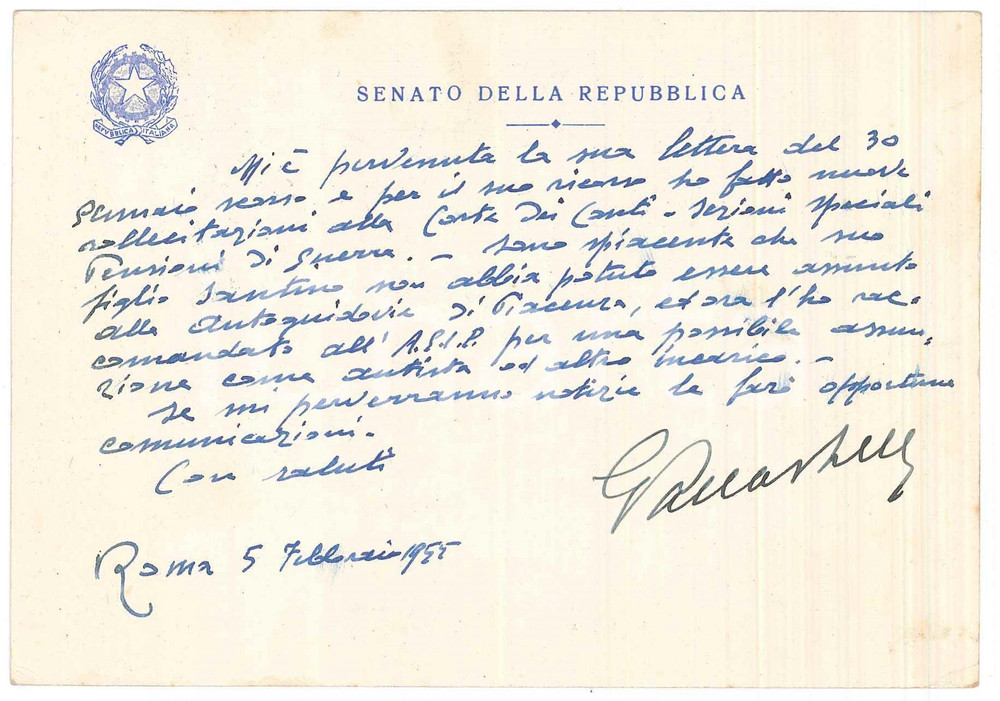 REPVBBLICA ITALIANA
SENATO DELLA REPUBBLICA
Mi è pervenuta la sua lettera del 30
gennaio scorso e per il suo ricorso ho fatto nuove
sollecitazioni alla Corte dei Conti - Sezioni speciali
Pensioni di Guerra. - Sono spiacente che suo
figlio Santino non abbia potuto essere assunto
alle Autoguidovie di Piacenza, ed ora l'ho rac-
comandato all'A.G.I.P. per una possibile assun-
zione come autista od altro incarico. -
Se mi perverranno notizie le farò opportune
comunicazioni.
Con saluti
Roma 5 Febbraio 1955